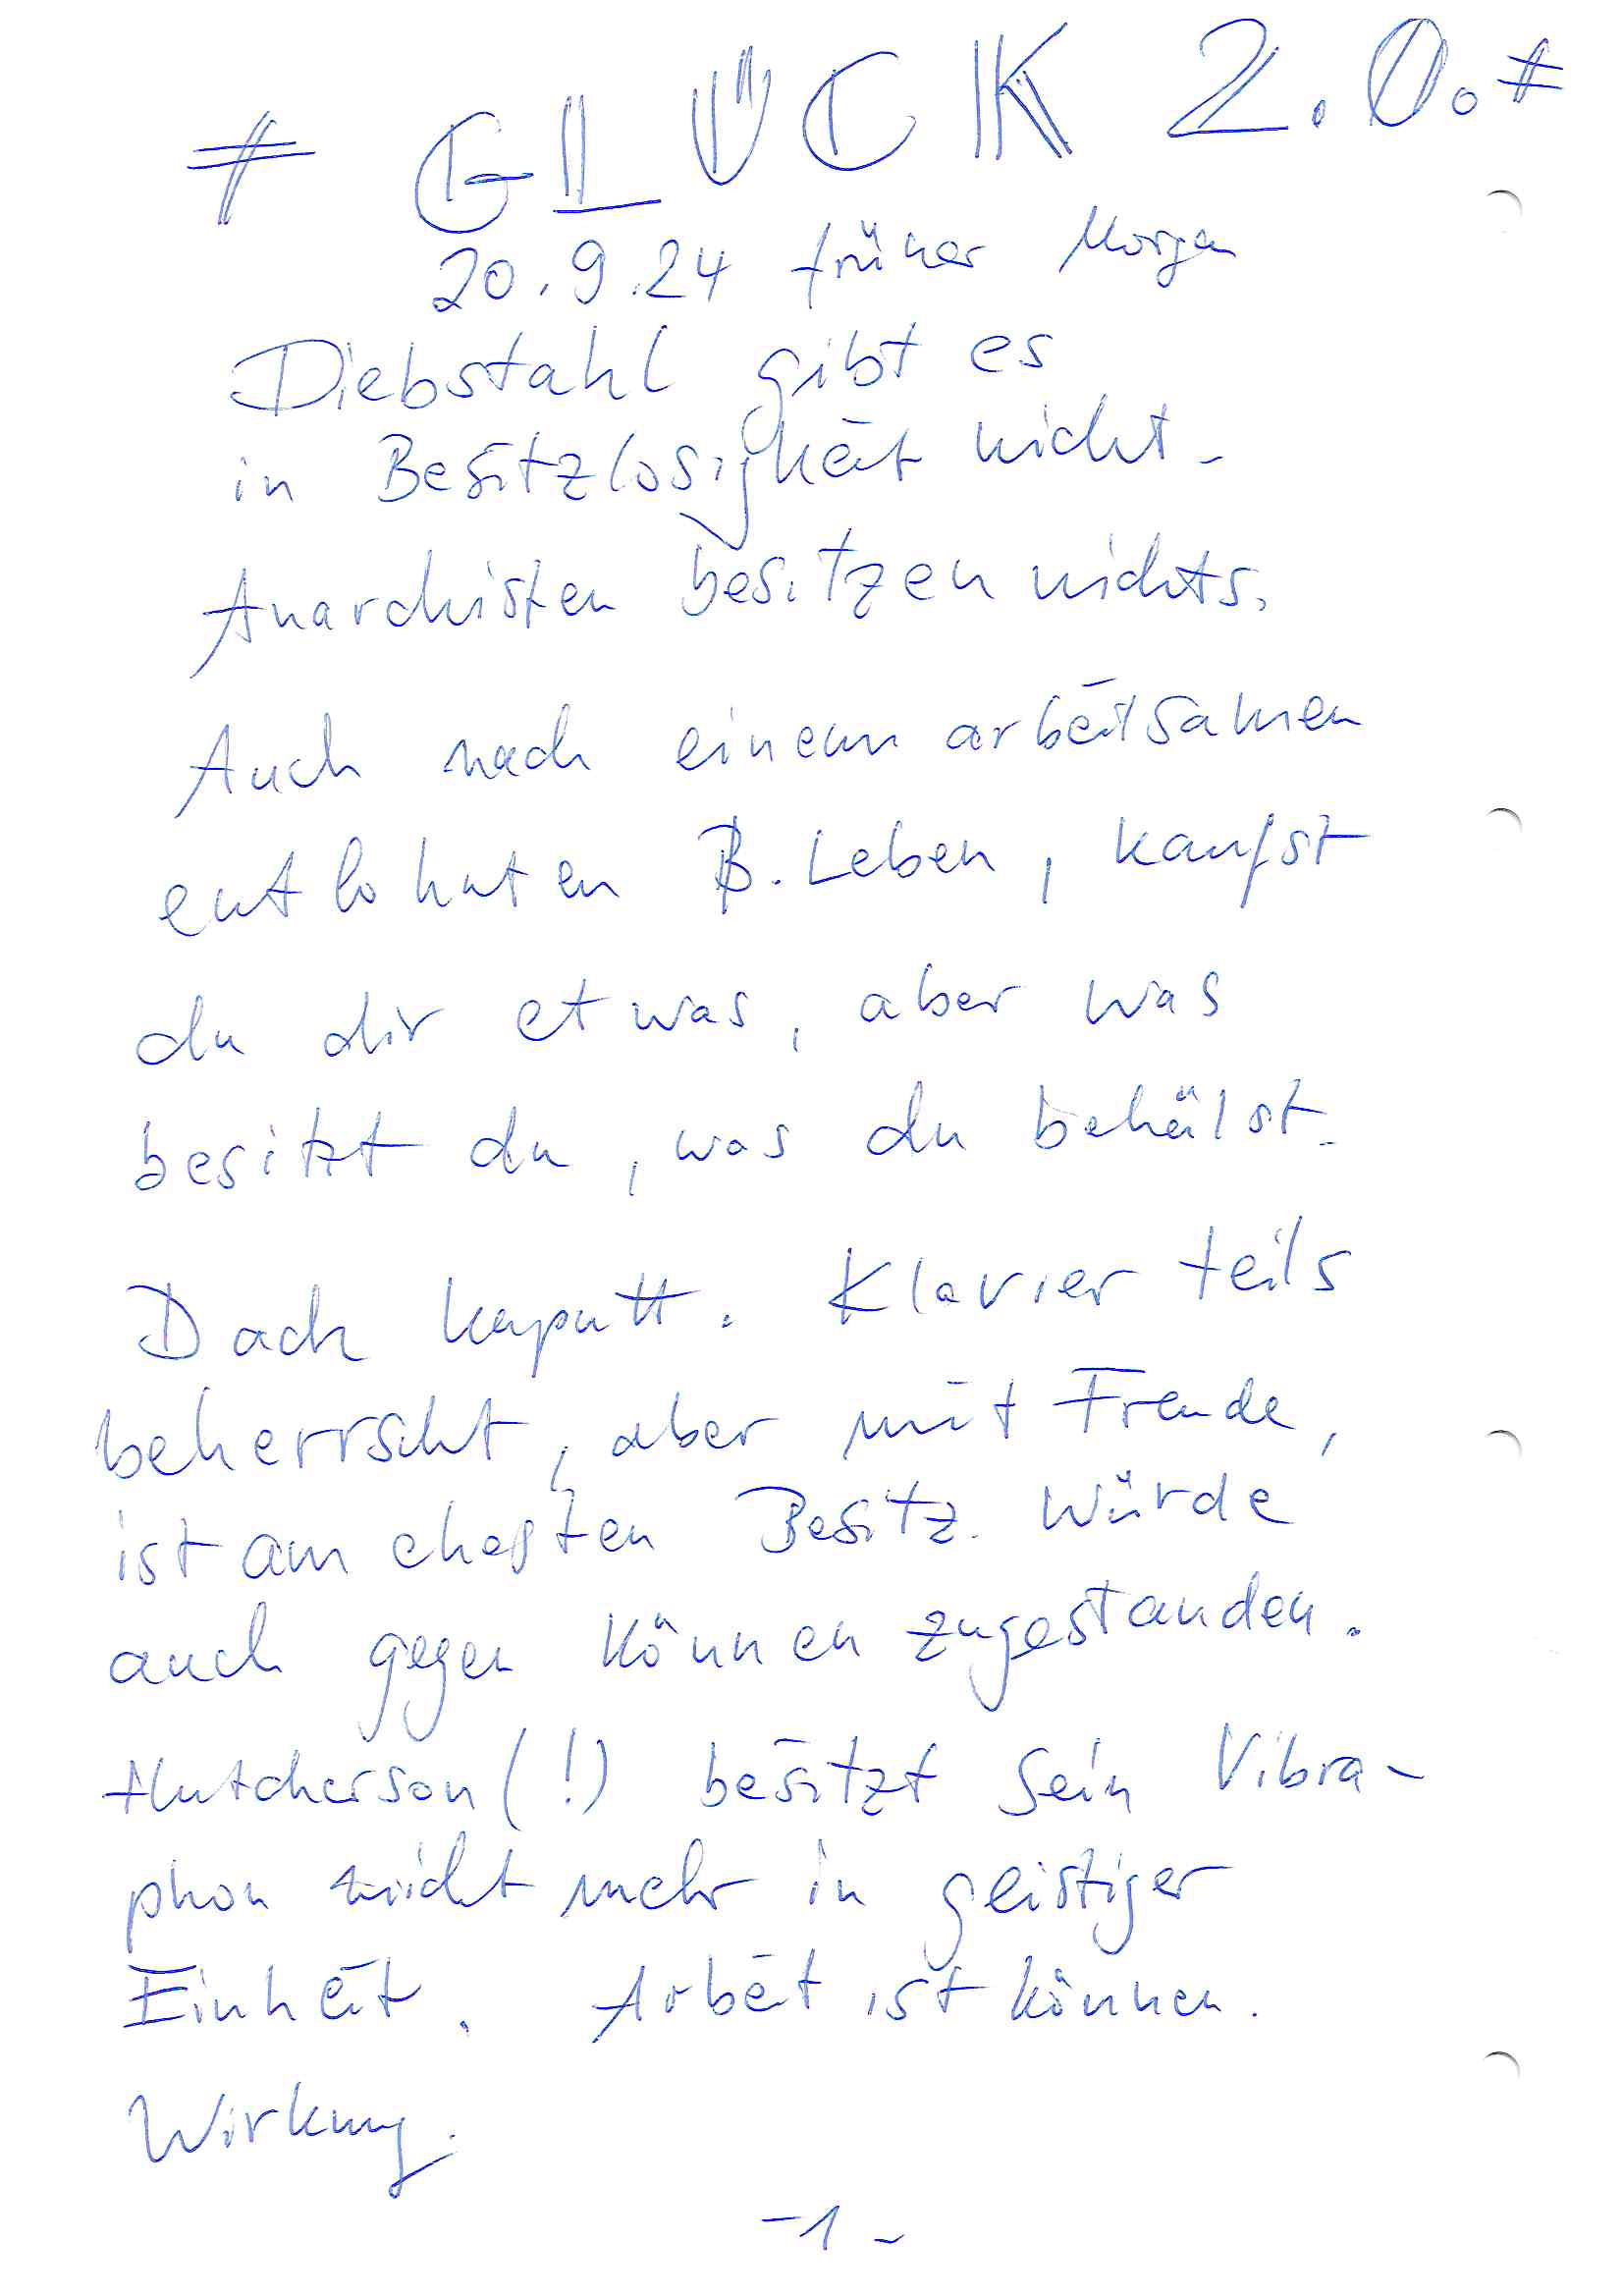 # GLÜCK 2.0. #
20.9.24 früher Morgen
Diebstahl gibt es
in Besitzlosigkeit nicht.
Anarchisten besitzen nichts.
Auch nach einem arbeitsamen
entlohnten B. Leben, kaufst
du dir etwas, aber was
besitzt du, was du behälst.
Dach kaputt. Klavier teils
beherrscht, aber mit Freude,
ist am ehesten Besitz. Würde
auch gegen Können zugestanden.
Hutcherson (!) besitzt sein Vibra-
phon nicht mehr in geistiger
Einheit. Arbeit ist können.
Wirkung.
-1-